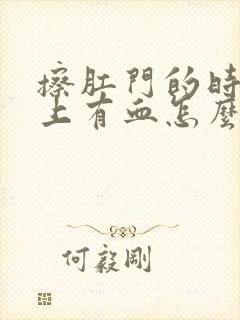 擦肛門的時
上有血怎麼
何毅剛